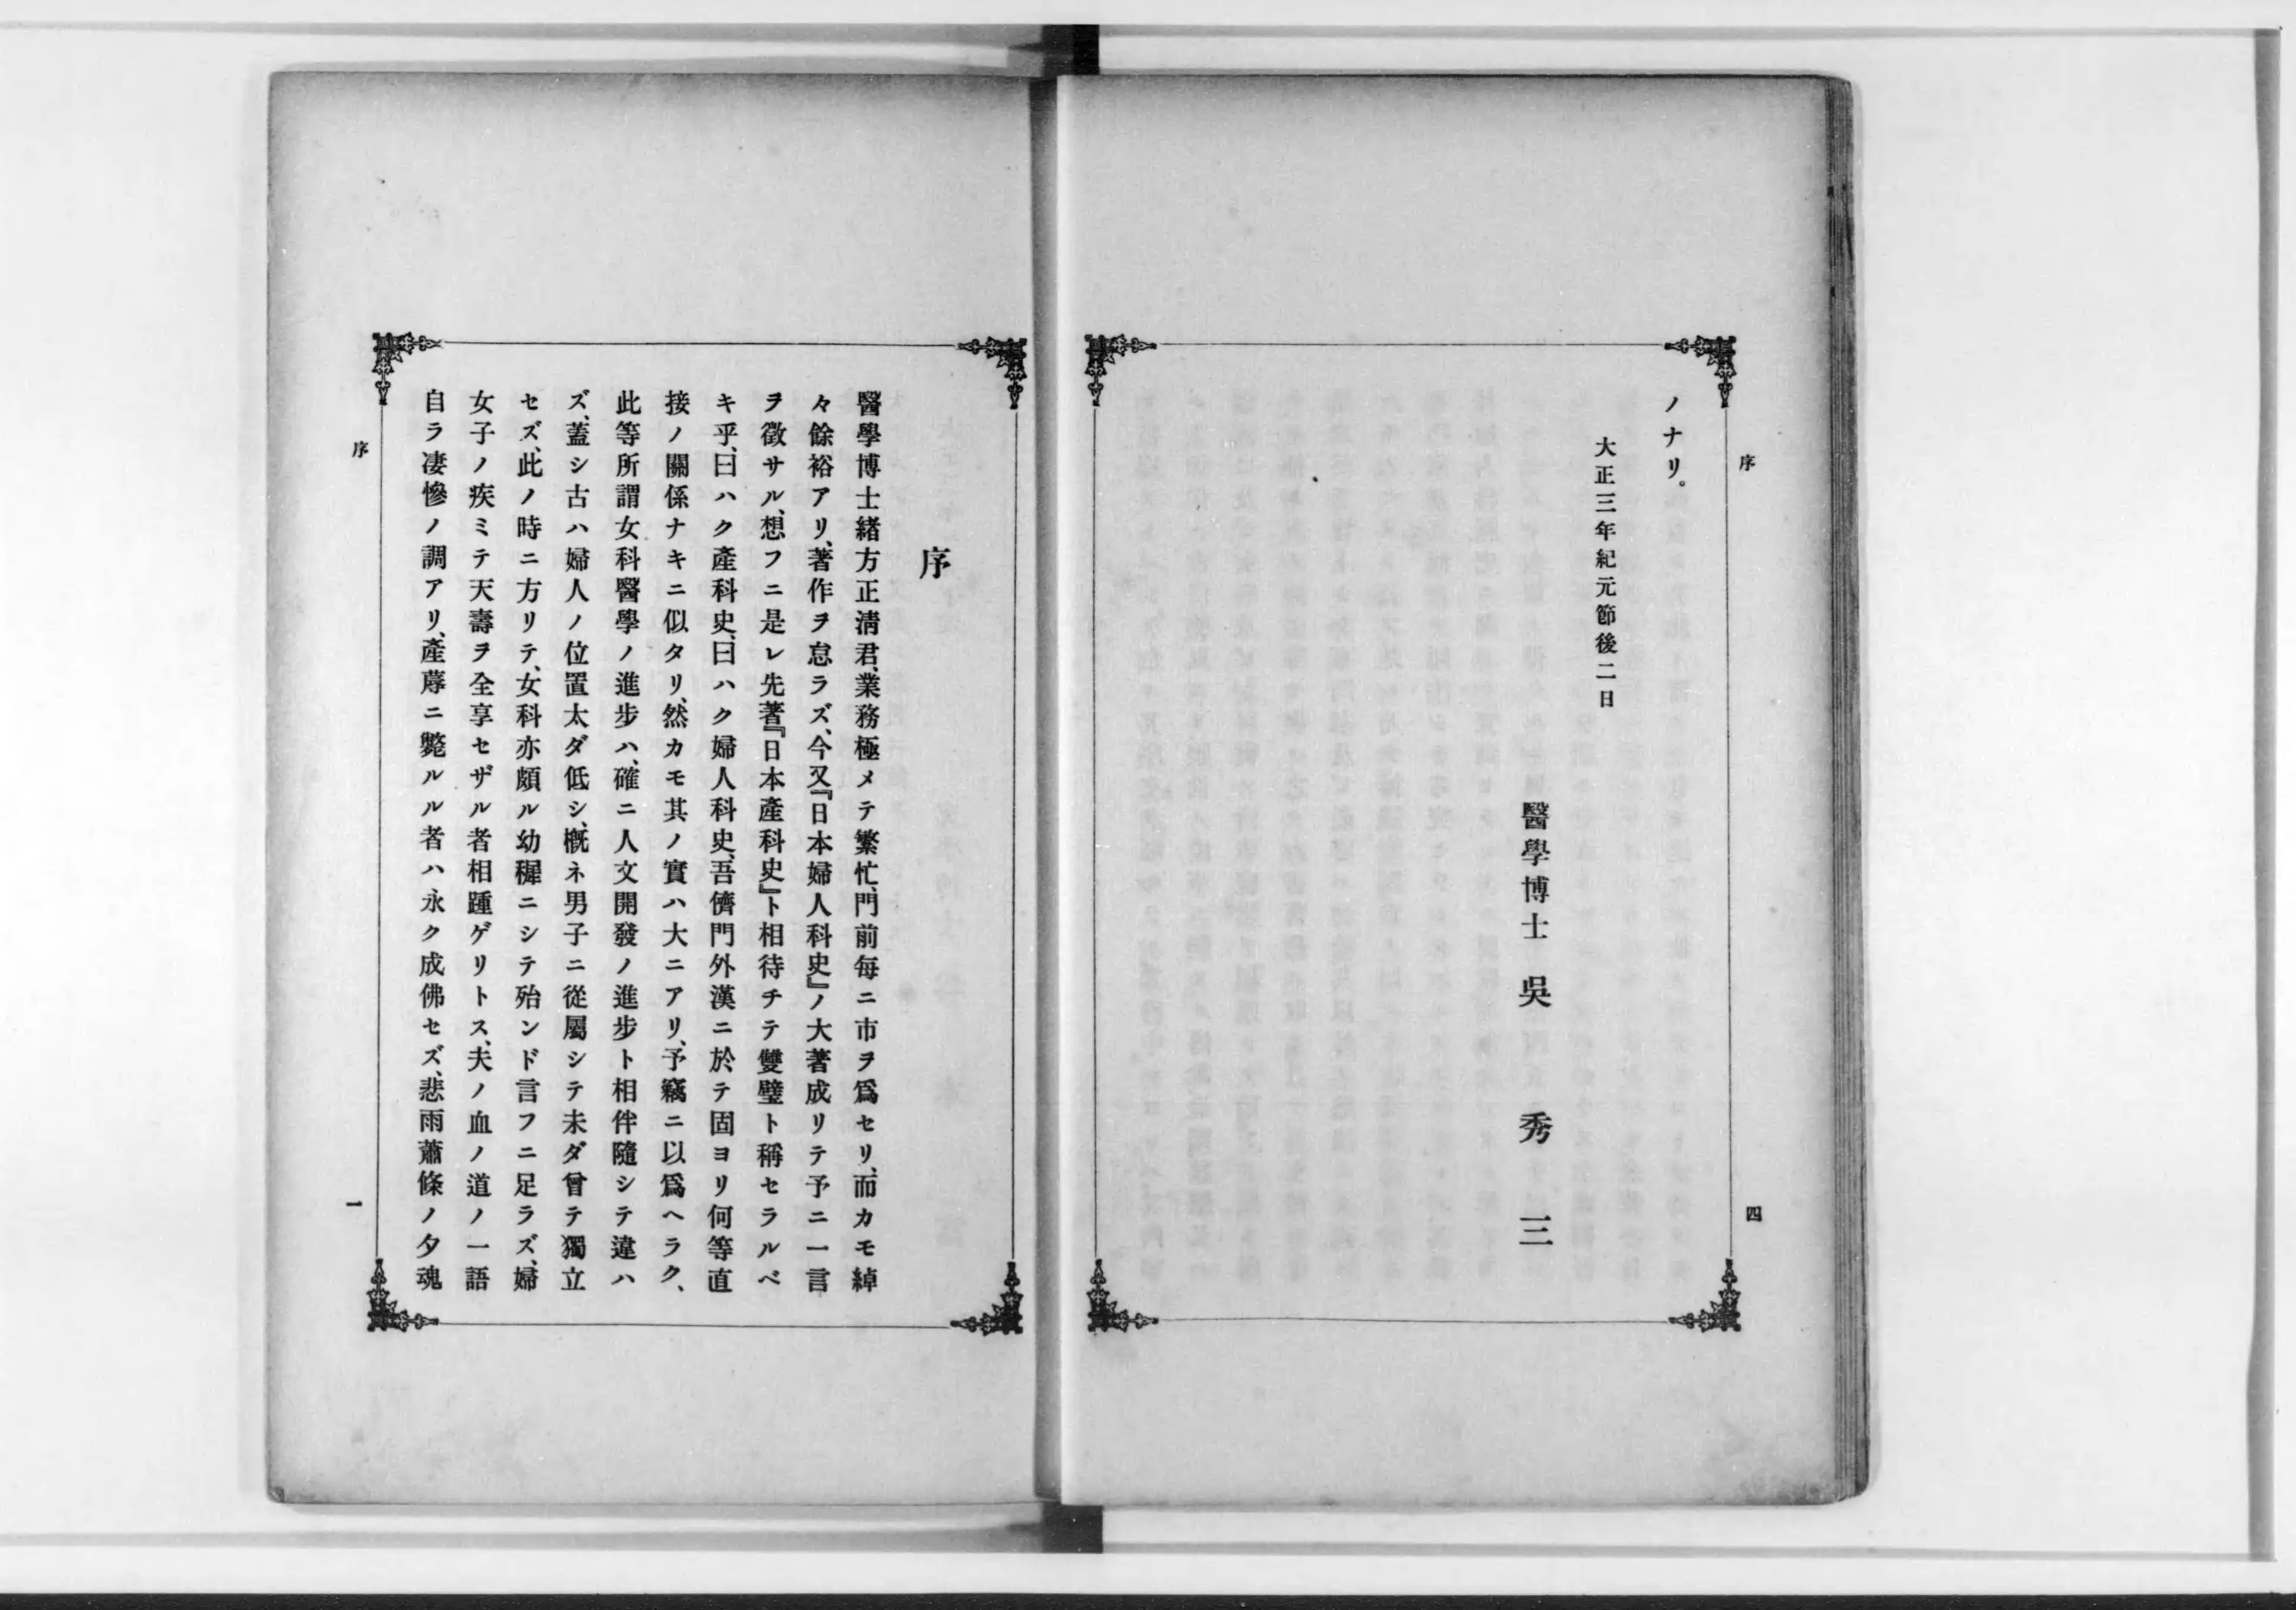 序
四
ノナリ。
大正三年紀元節後二日
醫學博士 吳 秀 三
序
醫學博士緒方正淸君、業務極メテ繁忙、門前每ニ市ヲ爲セリ、而カモ綽
々餘裕アリ、著作ヲ怠ラズ、今又『日本婦人科史』ノ大著成リテ予ニ一言
ヲ徵サル、想フニ是レ先著『日本產科史』ト相待チテ雙璧ト稱セラルベ
キ乎、曰ハク產科史、曰ハク婦人科史、吾儕門外漢ニ於テ固ヨリ何等直
接ノ關係ナキニ似タリ、然カモ其ノ實ハ大ニアリ、予竊ニ以爲ヘラク、
此等所謂女科醫學ノ進步ハ、確ニ人文開發ノ進步ト相伴隨シテ違ハ
ズ、蓋シ古ハ婦人ノ位置太ダ低シ、槪ネ男子ニ從屬シテ未ダ曾テ獨立
セズ、此ノ時ニ方リテ、女科亦頗ル幼穉ニシテ殆ンド言フニ足ラズ、婦
女子ノ疾ミテ天壽ヲ全享セザル者相踵ゲリトス、夫ノ血ノ道ノ一語
自ラ凄慘ノ調アリ、產蓐ニ斃ルル者ハ永ク成佛セズ、悲雨蕭條ノ夕魂
序
一